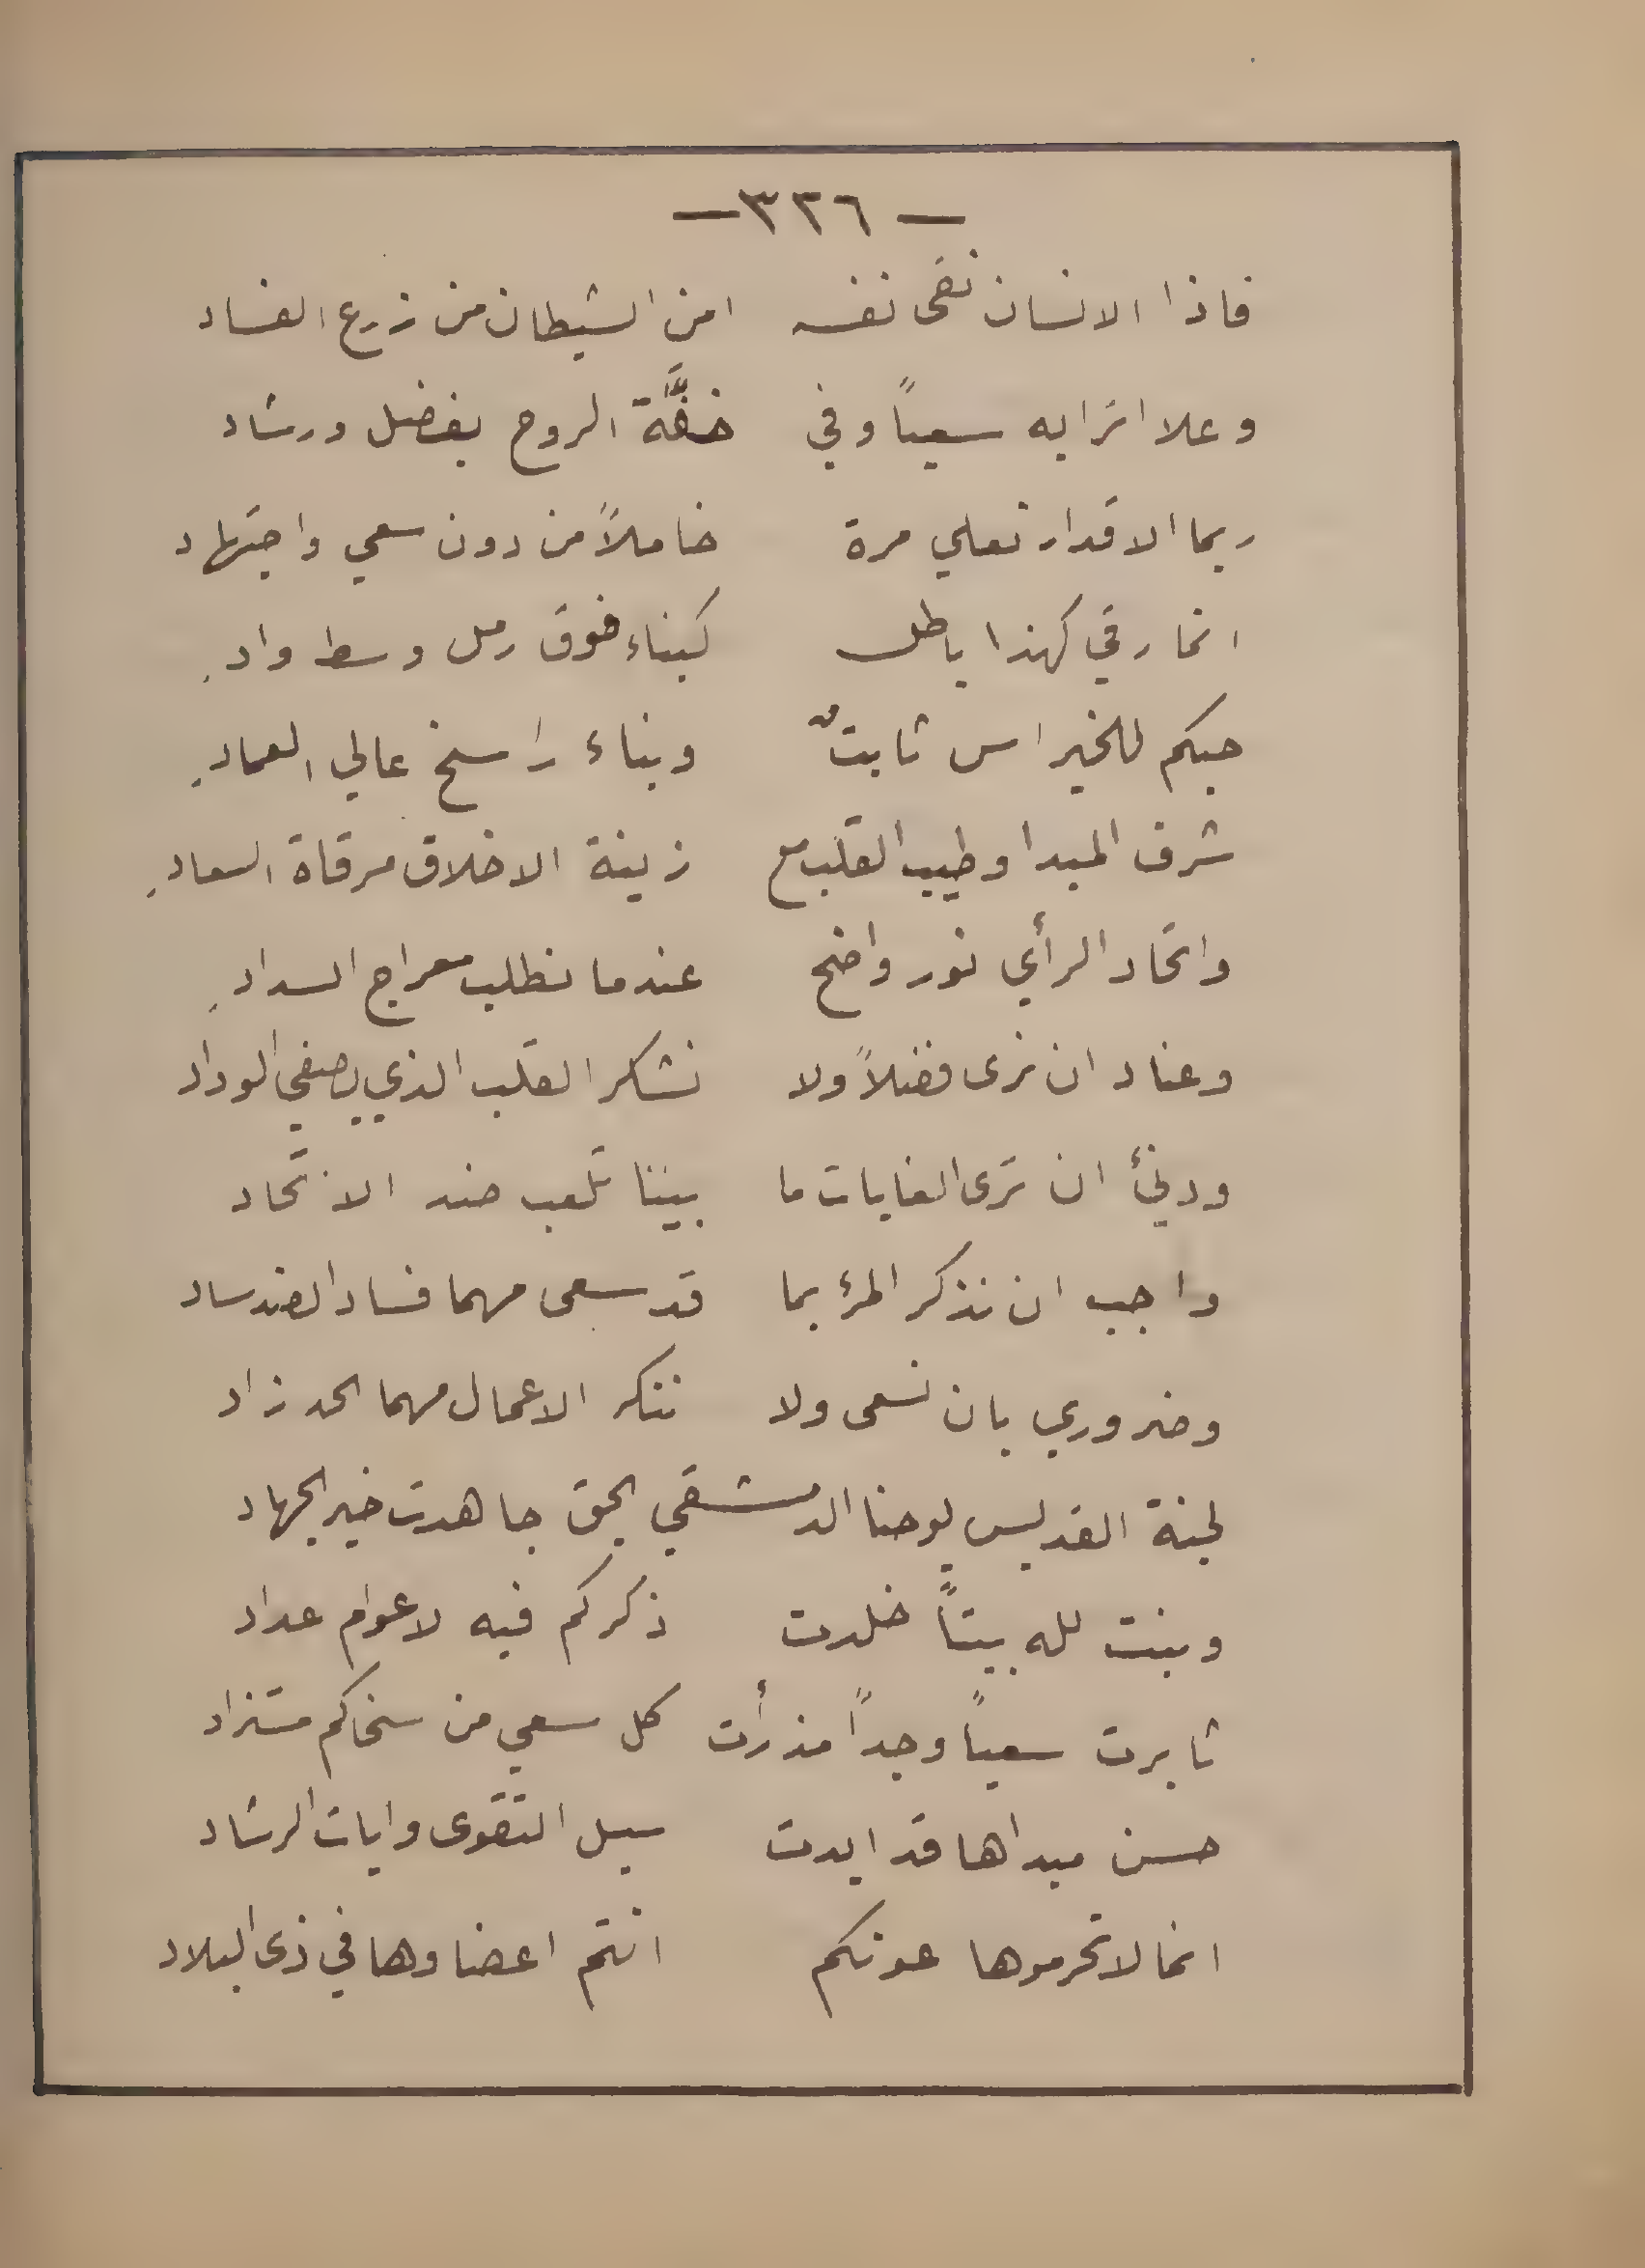 — ٣٢٦ —
فاذا الانسان نقى نفسه امن الشيطان من زرع الفساد
وعلا اترابه سعياً وفي خفَّة الروح بفضل ورشاد
ربما الاقدار تعلي مرة خاملاً من دون سعي واجتهاد
انما رقي كهذا باطل كبناء فوق رمل وسط وادِ
حبكم للخير اس ثابتٌ وبناء راسخ عالي العمادِ
شرف المبدا وطيب القلب مع زينة الاخلاق مرقاة السعادِ
واتحاد الرأي نور واضح عندما نطلب معراج السدادِ
وعناد ان نرى فضلاً ولا نشكر القلب الذي يصفي الوداد
ودنئ ان ترى الغايات ما بيننا تلعب ضد الاتحاد
واجب ان نذكر المرء بما قد سعى مهما فساد الضد ساد
وضروري بان نسعى ولا ننكر الاعمال مهما الحد زاد
لجنة القديس يوحنا الدمشقي بحق جاهدت خير الجهاد
وبنت لله بيتاً خلدت ذكركم فيه لاعوام عداد
ثابرت سعياً وجداً مذ رأت كل سعي من سخاكم مستزاد
حسن مبداها قد ايدت سبل التقوى وايات الرشاد
انما لا تحرموها عونكم انتم اعضاوها في ذى البلاد